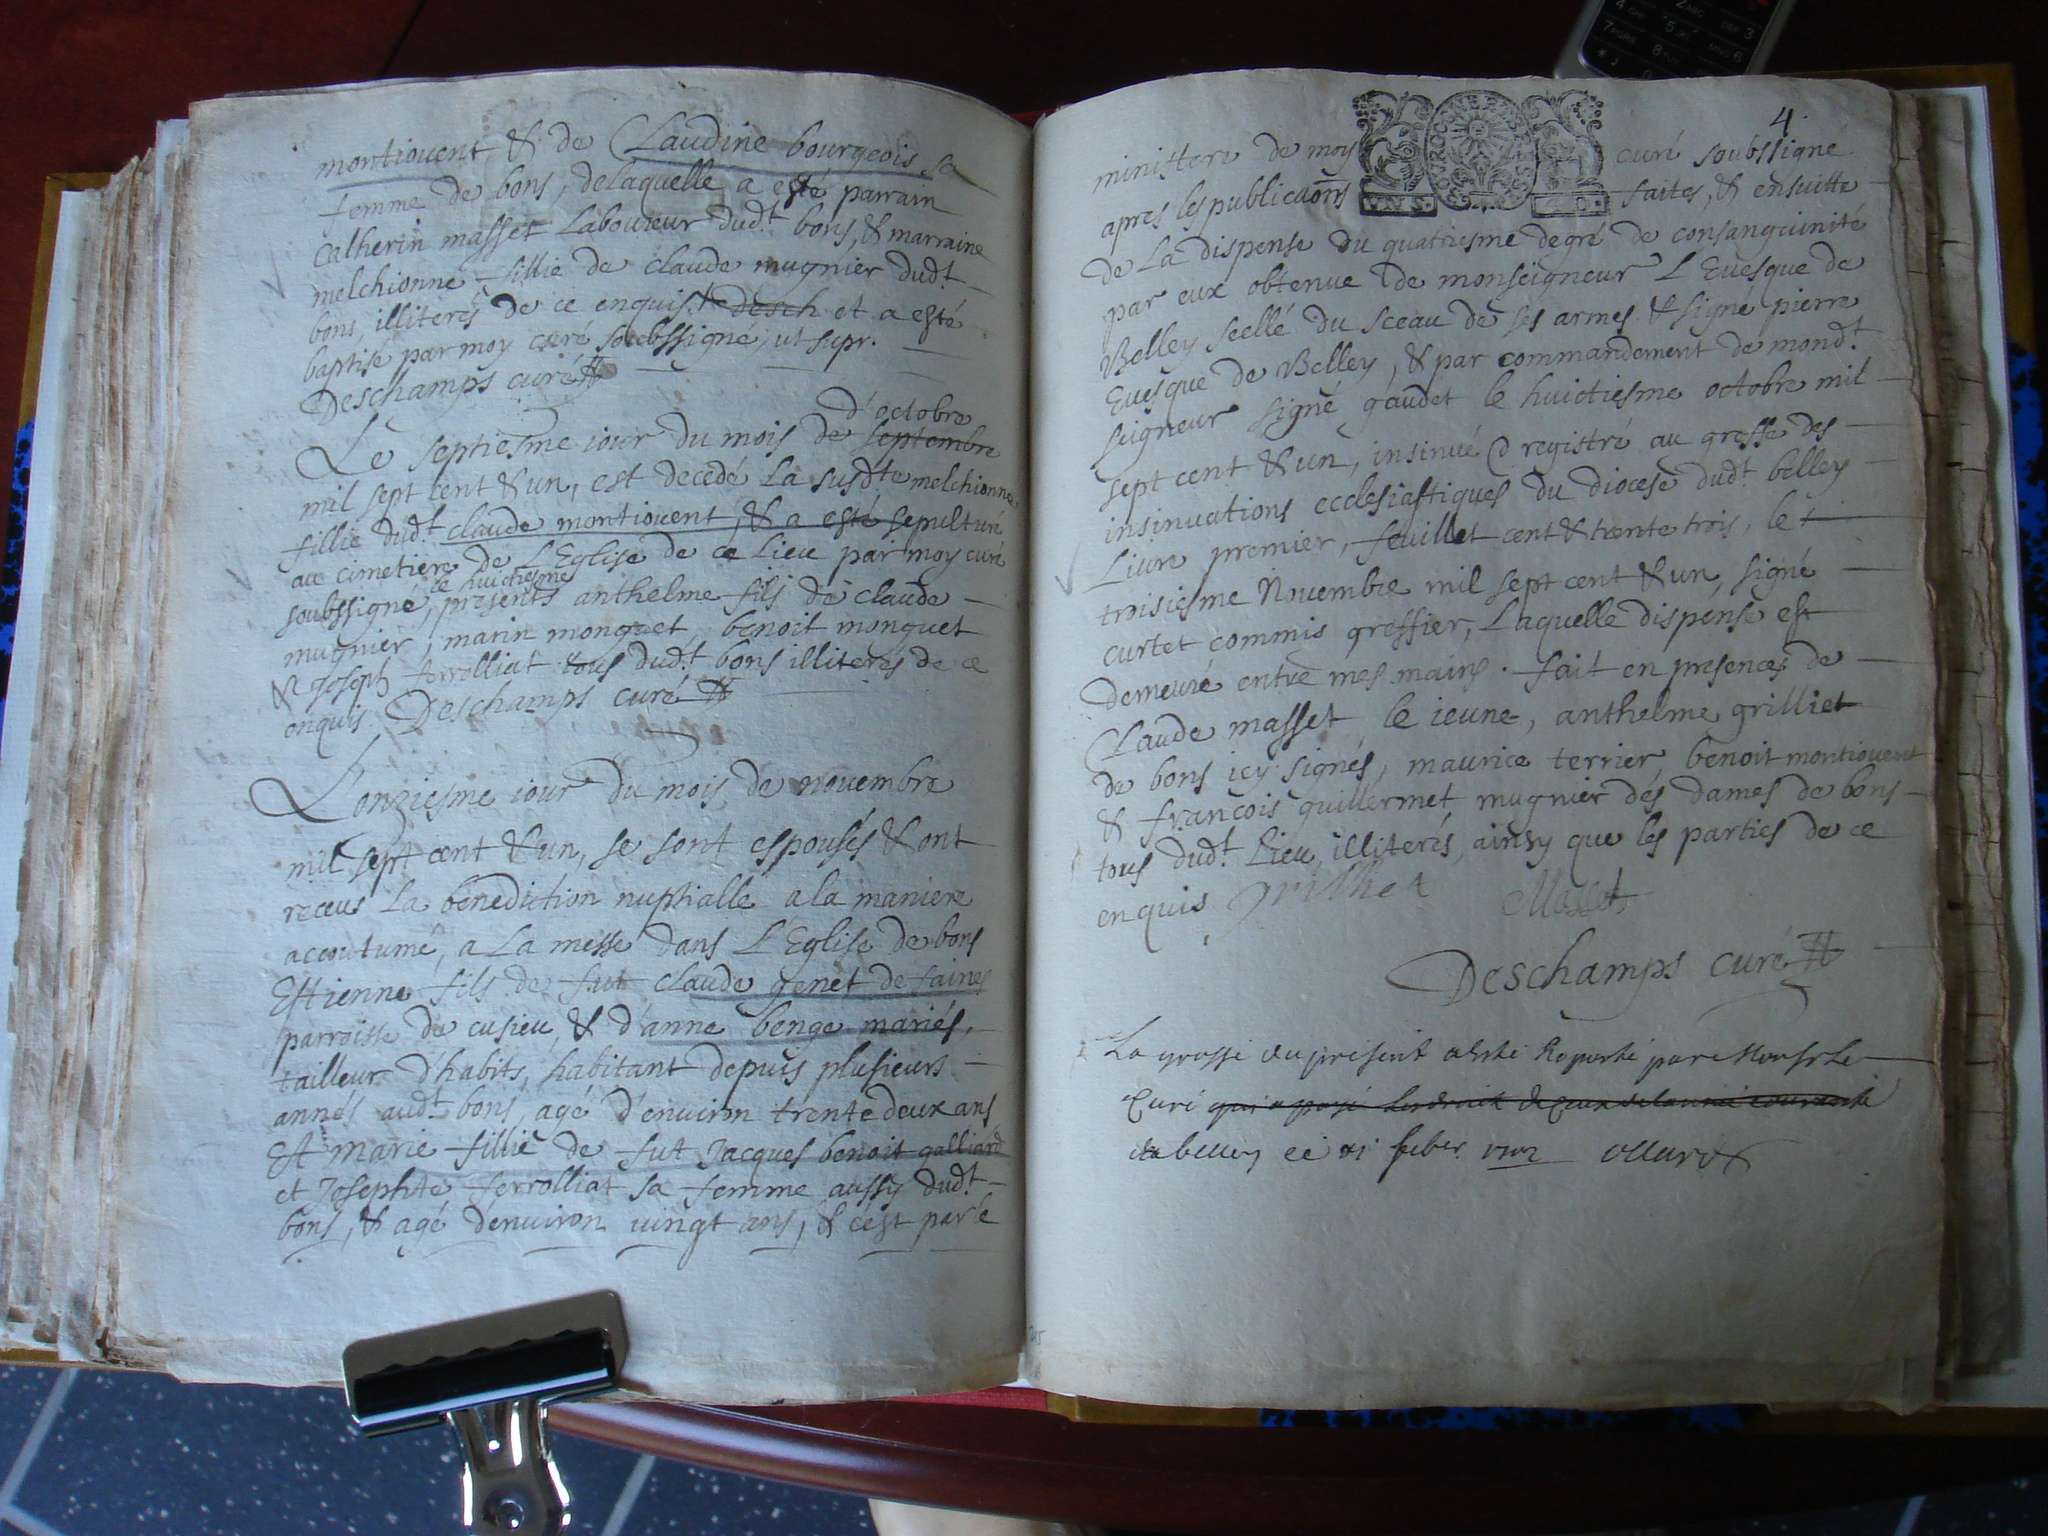 montiouent & de Claudine bourgeois sa
femme de bons, delaquelle a esté parrain
Catherin masset Laboureur dudt bons, & marraine
melchionne fillie de claude mugnier dudt
bons, illiterés de ce enquis desch et a esté
baptisé par moy curé soubssigné, ut supr.
Deschamps curé
d'octobre
Le septiesme iour du mois de septembre
mil sept cent & un, est decedé La susdte melchionne
fillie dudt claude montiouent, & a esté sepulturé
au cimetiere de L'Eglise de ce Lieu par moy curé
le huictiesme
soubssigné, présents anthelme fils de claude
mugnier, marin monguet, benoit monguet
& Joseph ferrolliat tous dudt bons illiterés de ce
enquis Deschamps curé
L'onziesme iour du mois de nouembre
mil sept cent & un, se sont espousés & ont
receus La benediction nuptialle a la maniere
accoutumé, a La messe dans L'Eglise de bons
Estienne fils de fut claude genet de faines
parroisse de cusieu, & d'anne benge mariés,
tailleur d'habits, habitant depuis plusieurs
annés audt bons, agé d'enuiron trente deux ans
Et marie fillie de fut Jacques benoit galliard
et Josephte ferrolliat sa femme aussy dudt
bons, & agé d'enuiron uingt ans, & c'est par le
4.
ministere de moy curé soubssigné
apres les publicaons faites, & ensuitte
de La dispense du quatriesme degré de consanguinité
par eux obtenue de monseigneur L'Euesque de
Belley seellé du sceau de ses armes & signé pierre
Euesque de Belley, & par commandement de mondt
seigneur signé gaudet le huictiesme octobre mil
sept cent & un, insinué & registré au greffe des
insinuations ecclesiastiques du diocese dudt belley
Liure premier, feuillet cent & trente trois, le
troisiesme Nouembre mil sept cent & un, signé
curtet commis greffier, Laquelle dispense est
demeuré entre mes mains. fait en presences de
Claude masset le ieune, anthelme grilliet
de bons icy signés, maurice terrier, benoit montiouent
& françois guillermet mugnier des dames de bons
tous dudt Lieu, illiterés, ainsy que les parties de ce
enquis grilliet Masset
Deschamps curé
La grosse du present a esté Raporté par Monsr Le
Curé qui a payé
a belley ce